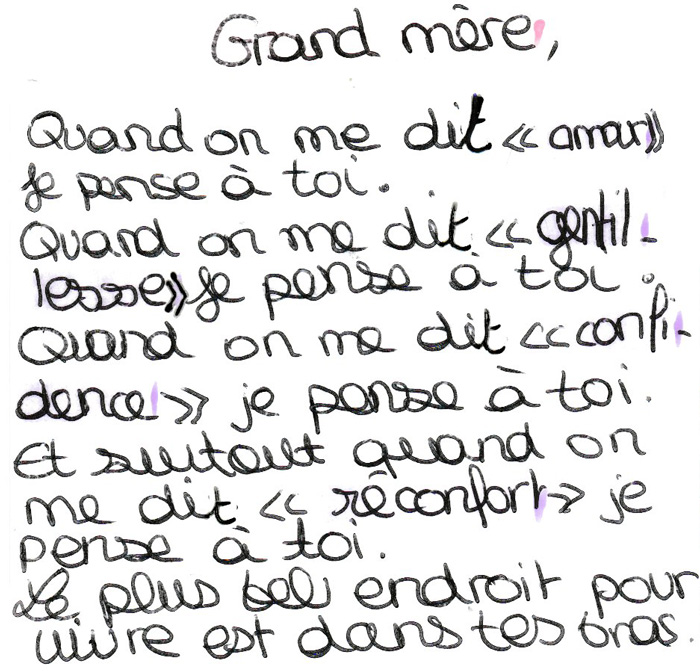 Grand mère,
Quand on me dit « amour»
je pense à toi.
Quand on me dit « gentil-
lesse» je pense à toi.
Quand on me dit « confi-
dence » je pense à toi.
Et surtout quand on
me dit « réconfort » je
pense à toi.
Le plus bel endroit pour
vivre est dans tes bras.